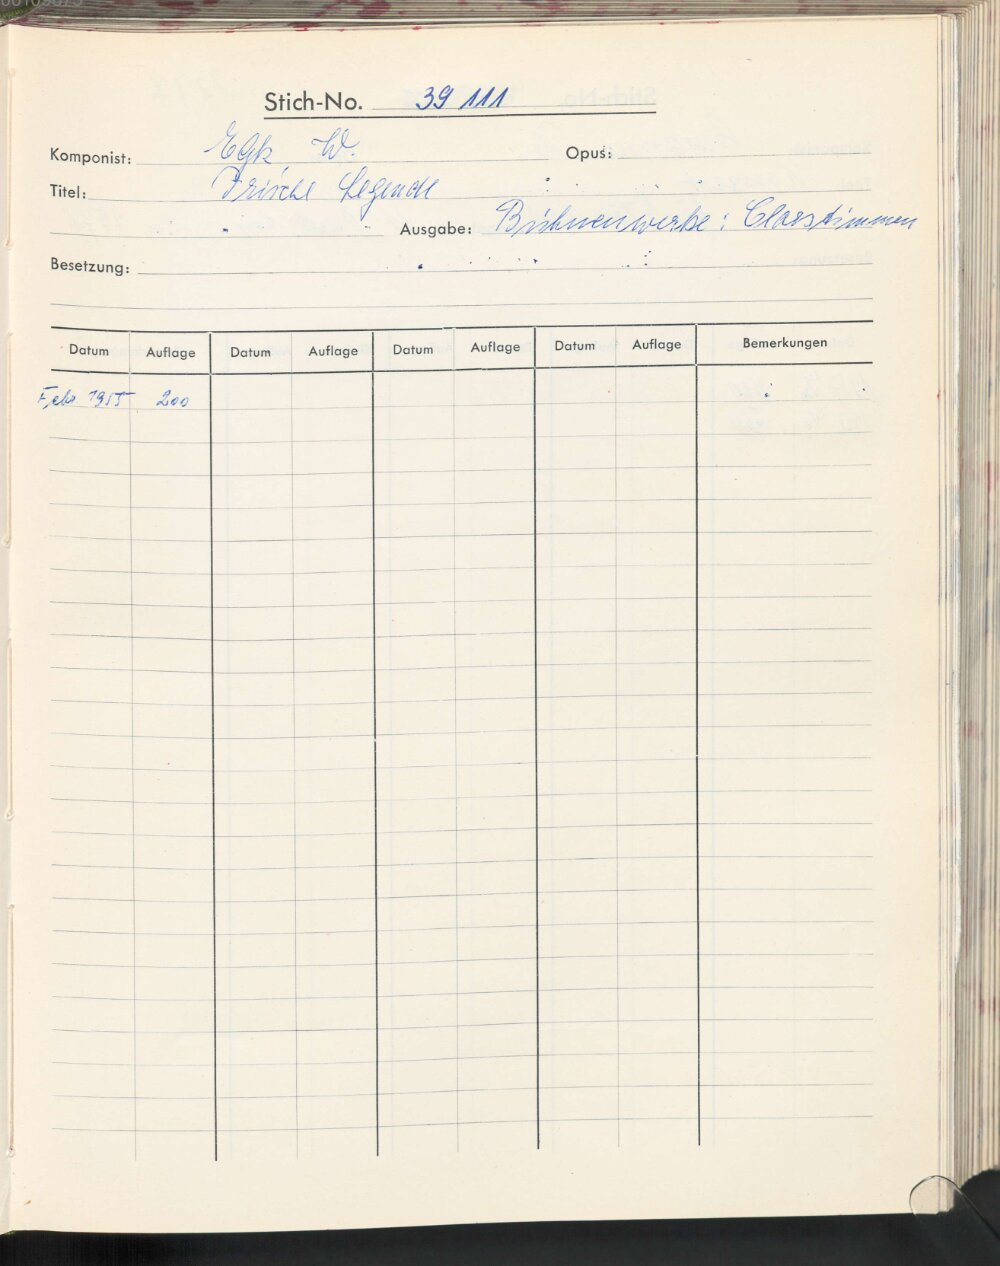 Stich-No. 39 111
Komponist: Egk W. Opus:
Titel: Irische Legende
Ausgabe: Bühnenwerke: Chorstimmen
Besetzung:
Datum Auflage Datum Auflage Datum Auflage Datum Auflage Bemerkungen
Febr 1955 200